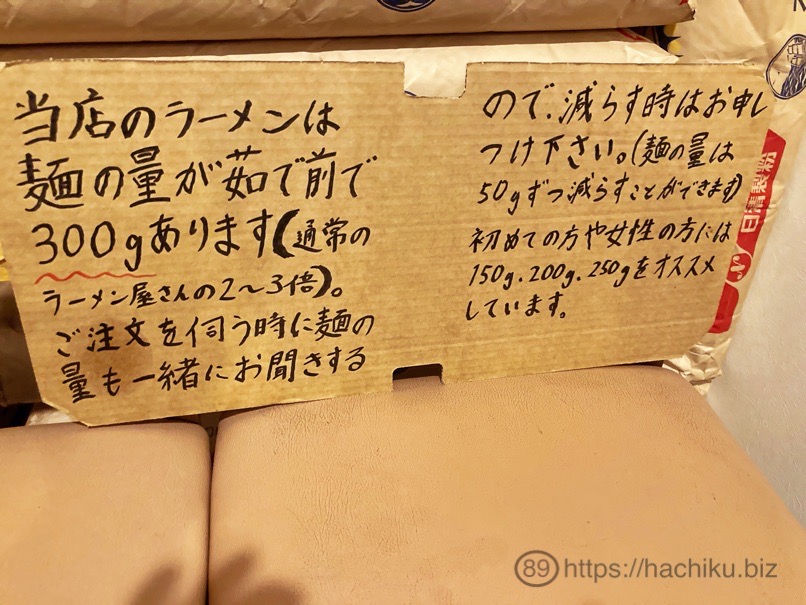 当店のラーメンは
麺の量が茹で前で
300gあります(通常の
ラーメン屋さんの2〜3倍)。
ご注文を伺う時に麺の
量も一緒にお聞きする
ので、減らす時はお申し
つけ下さい。(麺の量は
50gずつ減らすことができます)
初めての方や女性の方には
150g.200g.250gをオススメ
しています。
日清製粉
89 https://hachiku.biz